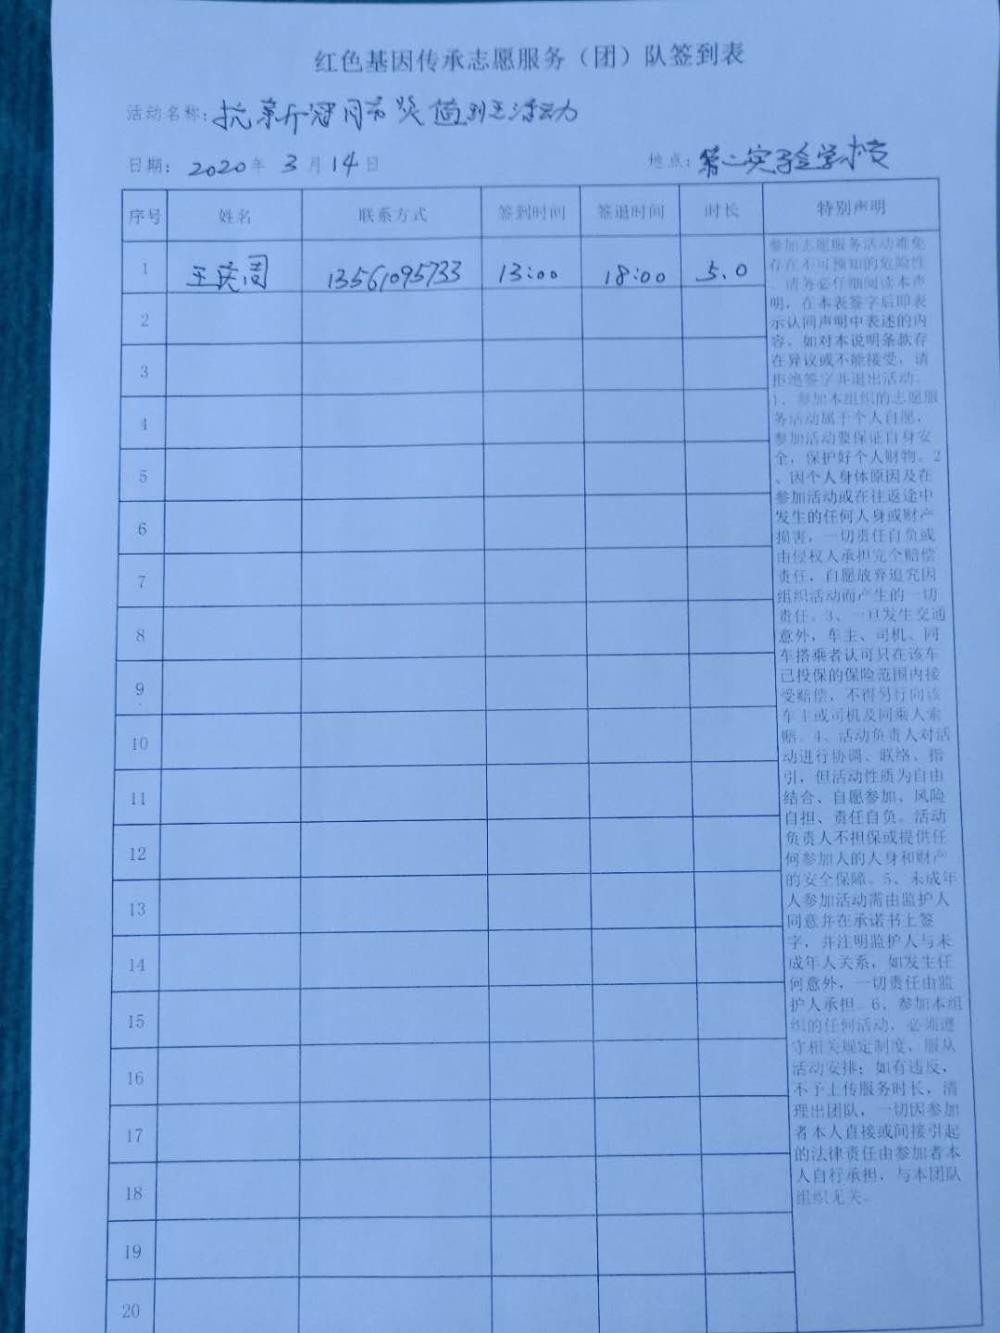 红色基因传承志愿服务（团）队签到表
活动名称: 抗新冠肺炎值班志活动
日期: 2020年 3月 14日 地点: 第二实验学校
序号 姓名 联系方式 签到时间 签退时间 时长 特别声明
1 王庆周 13561095733 13:00 18:00 5.0
2
3
4
5
6
7
8
9
10
11
12
13
14
15
16
17
18
19
20
参加志愿服务活动难免
存在不可预知的危险性
，请务必仔细阅读本声
明，在本表签字后即表
示认同声明中表述的内
容。如对本说明条款存
在异议或不能接受，请
拒绝签字并退出活动。
1、参加本组织的志愿服
务活动属于个人自愿，
参加活动要保证自身安
全，保护好个人财物。2
、因个人身体原因及在
参加活动或在往返途中
发生的任何人身或财产
损害，一切责任自负或
由侵权人承担完全赔偿
责任，自愿放弃追究因
组织活动而产生的一切
责任。3、一旦发生交通
意外，车主、司机、同
车搭乘者认可只在该车
已投保的保险范围内接
受赔偿，不得另行向该
车主或司机及同乘人索
赔。4、活动负责人对活
动进行协调、联络、指
引，但活动性质为自由
结合、自愿参加、风险
自担、责任自负。活动
负责人不担保或提供任
何参加人的人身和财产
的安全保障。5、未成年
人参加活动需由监护人
同意并在承诺书上签
字，并注明监护人与未
成年人关系，如发生任
何意外，一切责任由监
护人承担。6、参加本组
织的任何活动，必须遵
守相关规定制度，服从
活动安排；如有违反，
不予上传服务时长，清
理出团队，一切因参加
者本人直接或间接引起
的法律责任由参加者本
人自行承担，与本团队
组织无关。